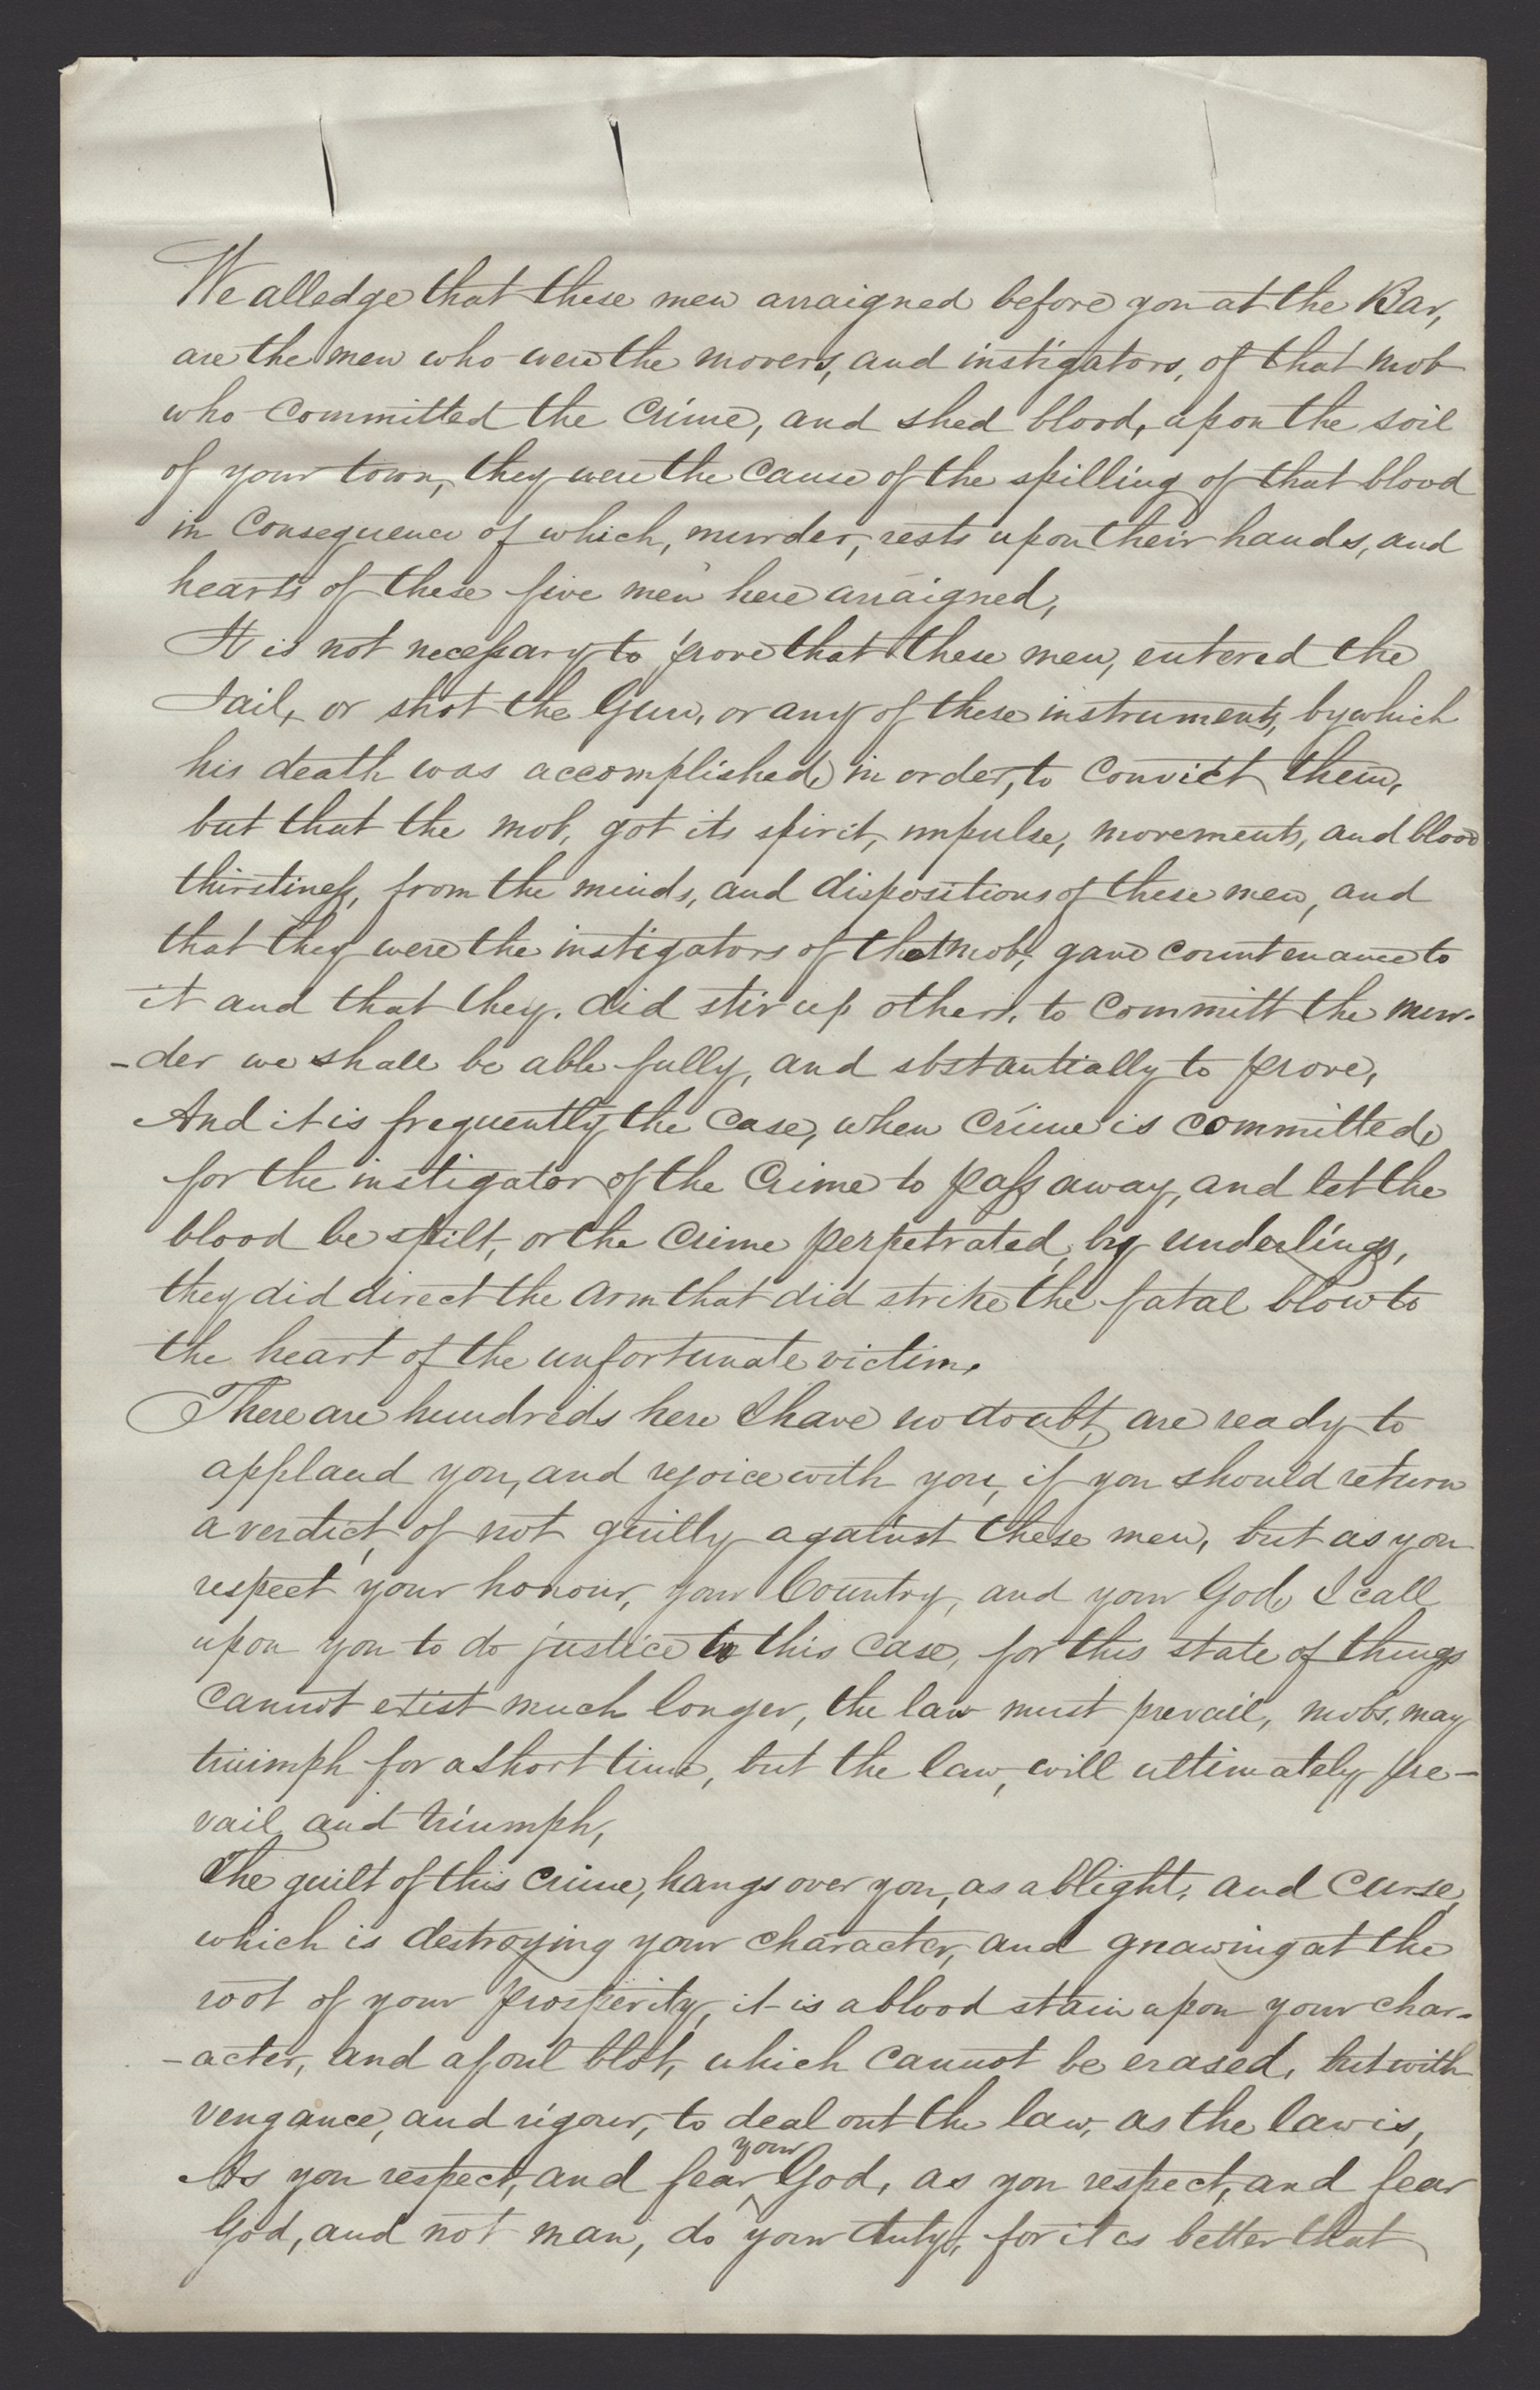 We alledge that these men arraigned before you at the Bar,
are the men who were the movers, and instigators, of that mob
who committed the Crime, and shed blood, upon the soil
of your town, they were the Cause of the spilling of that blood
in Consequence of which, murder, rests upon their hands, and
hearts of these five men here arraigned,
It is not necessary to prove that these men, entered the
Jail, or shot the Gun, or any of these instruments, by which
his death was accomplished, in order, to Convict them,
but that the mob, got its spirit, impulse, movements, and blood
thirstiness, from the minds, and dispositions of these men, and
that they were the instigators of that mob, gave countenance to
it and that they. did stir up others, to Committ the mur-
-der we shall be able fully, and sbstantially to prove,
And it is frequently the Case, when Crime is committed,
for the instigator of the Crime to pass away, and let the
blood be spilt, or the Crime perpetrated, by underlings,
they did direct the arm that did strike the fatal blow to
the heart of the unfortunate victim.
There are hundreds here I have no doubt, are ready to
applaud you, and rejoice with you, if you should return
a verdict, of not guilty against these men, but as you
respect your honour, your Country, and your God, I call
upon you to do justice to this Case, for this state of things
Cannot exist much longer, the law must prevail, mobs, may
triumph for a short time, but the law, will ultimately pre-
vail, and triumph,
The guilt of this Crime, hangs over you, as a blight, and Curse,
which is destroying your character, and gnawing at the
root of your prosperity, it is a blood stain upon your char-
-acter, and a foul blot, which Cannot be erased, but with
vengance, and rigour, to deal out the law, as the law is,
As you respect, and fear your God, as you respect, and fear
God, and not man, do your duty, for it is better that